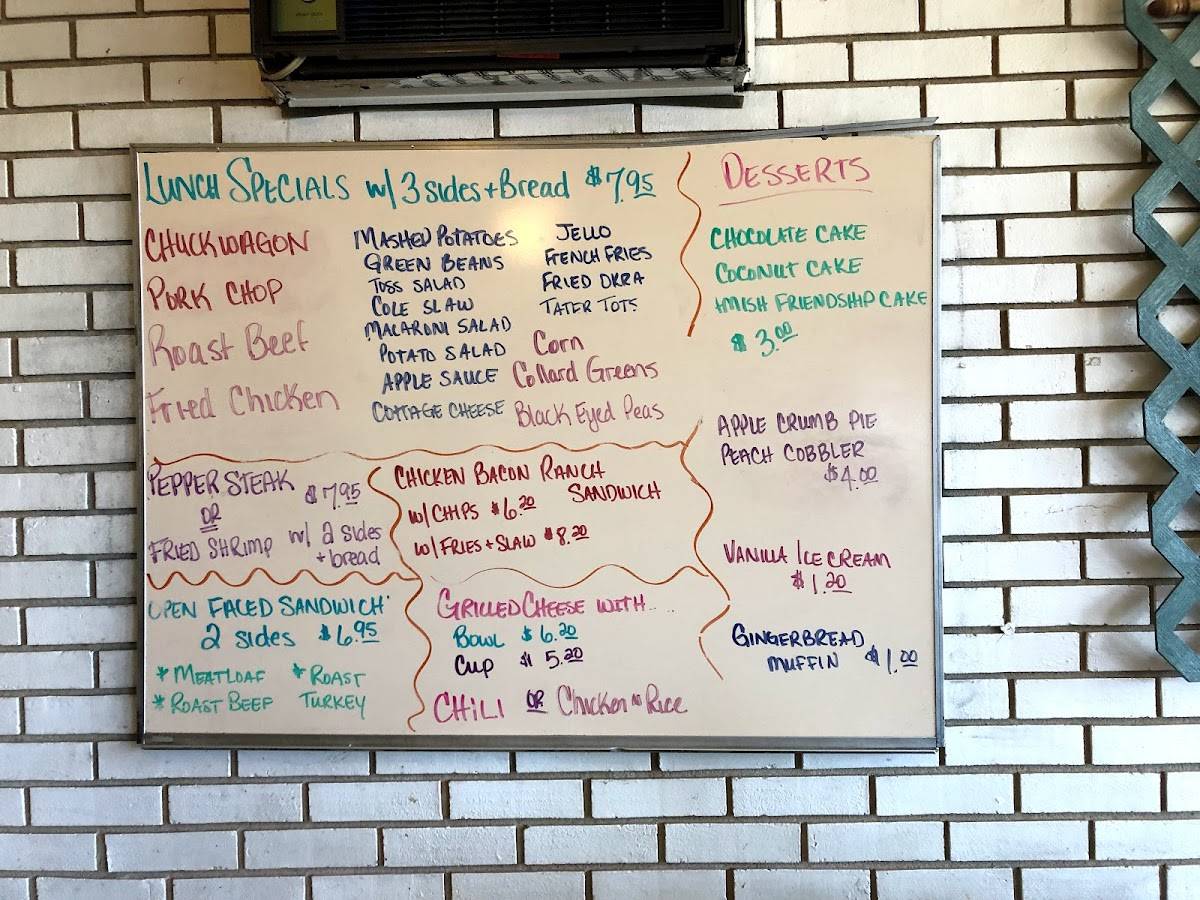 LUNCH SPECIALS W/3 SIDES + BREAD $7.95
CHUCKWAGON
PORK CHOP
Roast Beef
Fried Chicken
MASHED POTATOES
GREEN BEANS
TOSS SALAD
COLE SLAW
MACARONI SALAD
POTATO SALAD
APPLE SAUCE
COTTAGE CHEESE
JELLO
FRENCH FRIES
FRIED OKRA
TATER TOTS
Corn
Collard Greens
Black Eyed Peas
PEPPER STEAK $7.95
OR
FRIED SHRIMP w/ 2 sides
+ bread
CHICKEN BACON RANCH
SANDWICH
W/CHIPS $6.20
W/FRIES + SLAW $8.20
OPEN FACED SANDWICH
2 sides $6.95
* MEATLOAF * ROAST
* ROAST BEEF TURKEY
GRILLED CHEESE WITH....
BOWL $6.20
CUP $5.20
CHILI OR Chicken N Rice
DESSERTS
CHOCOLATE CAKE
COCONUT CAKE
AMISH FRIENDSHIP CAKE
$3.00
APPLE CRUMB PIE
PEACH COBBLER
$4.00
VANILLA ICE CREAM
$1.20
GINGERBREAD
MUFFIN $1.00